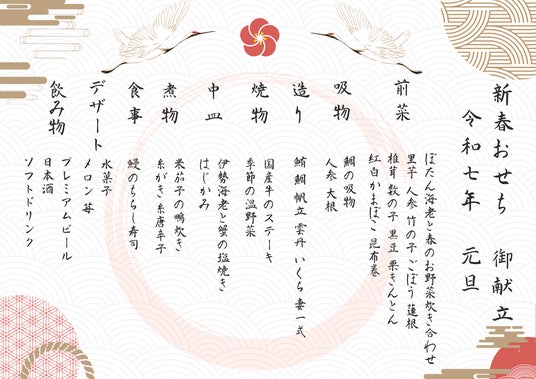 新春おせち 御献立
令和七年 元旦
前菜
ぼたん海老と春のお野菜炊き合わせ
里芋 人参 竹の子 ごぼう 蓮根
椎茸 数の子 黒豆 栗きんとん
紅白かまぼこ 昆布巻
吸物
鯛の吸物
人参 大根
造り
鮪 鯛 帆立 雲丹 いくら 妻一式
焼物
国産牛のステーキ
季節の温野菜
中皿
伊勢海老と蟹の塩焼き
はじかみ
煮物
米茄子の鴫炊き
糸がき 糸唐辛子
食事
鰻のちらし寿司
デザート
水菓子
メロン 苺
飲み物
プレミアムビール
日本酒
ソフトドリンク